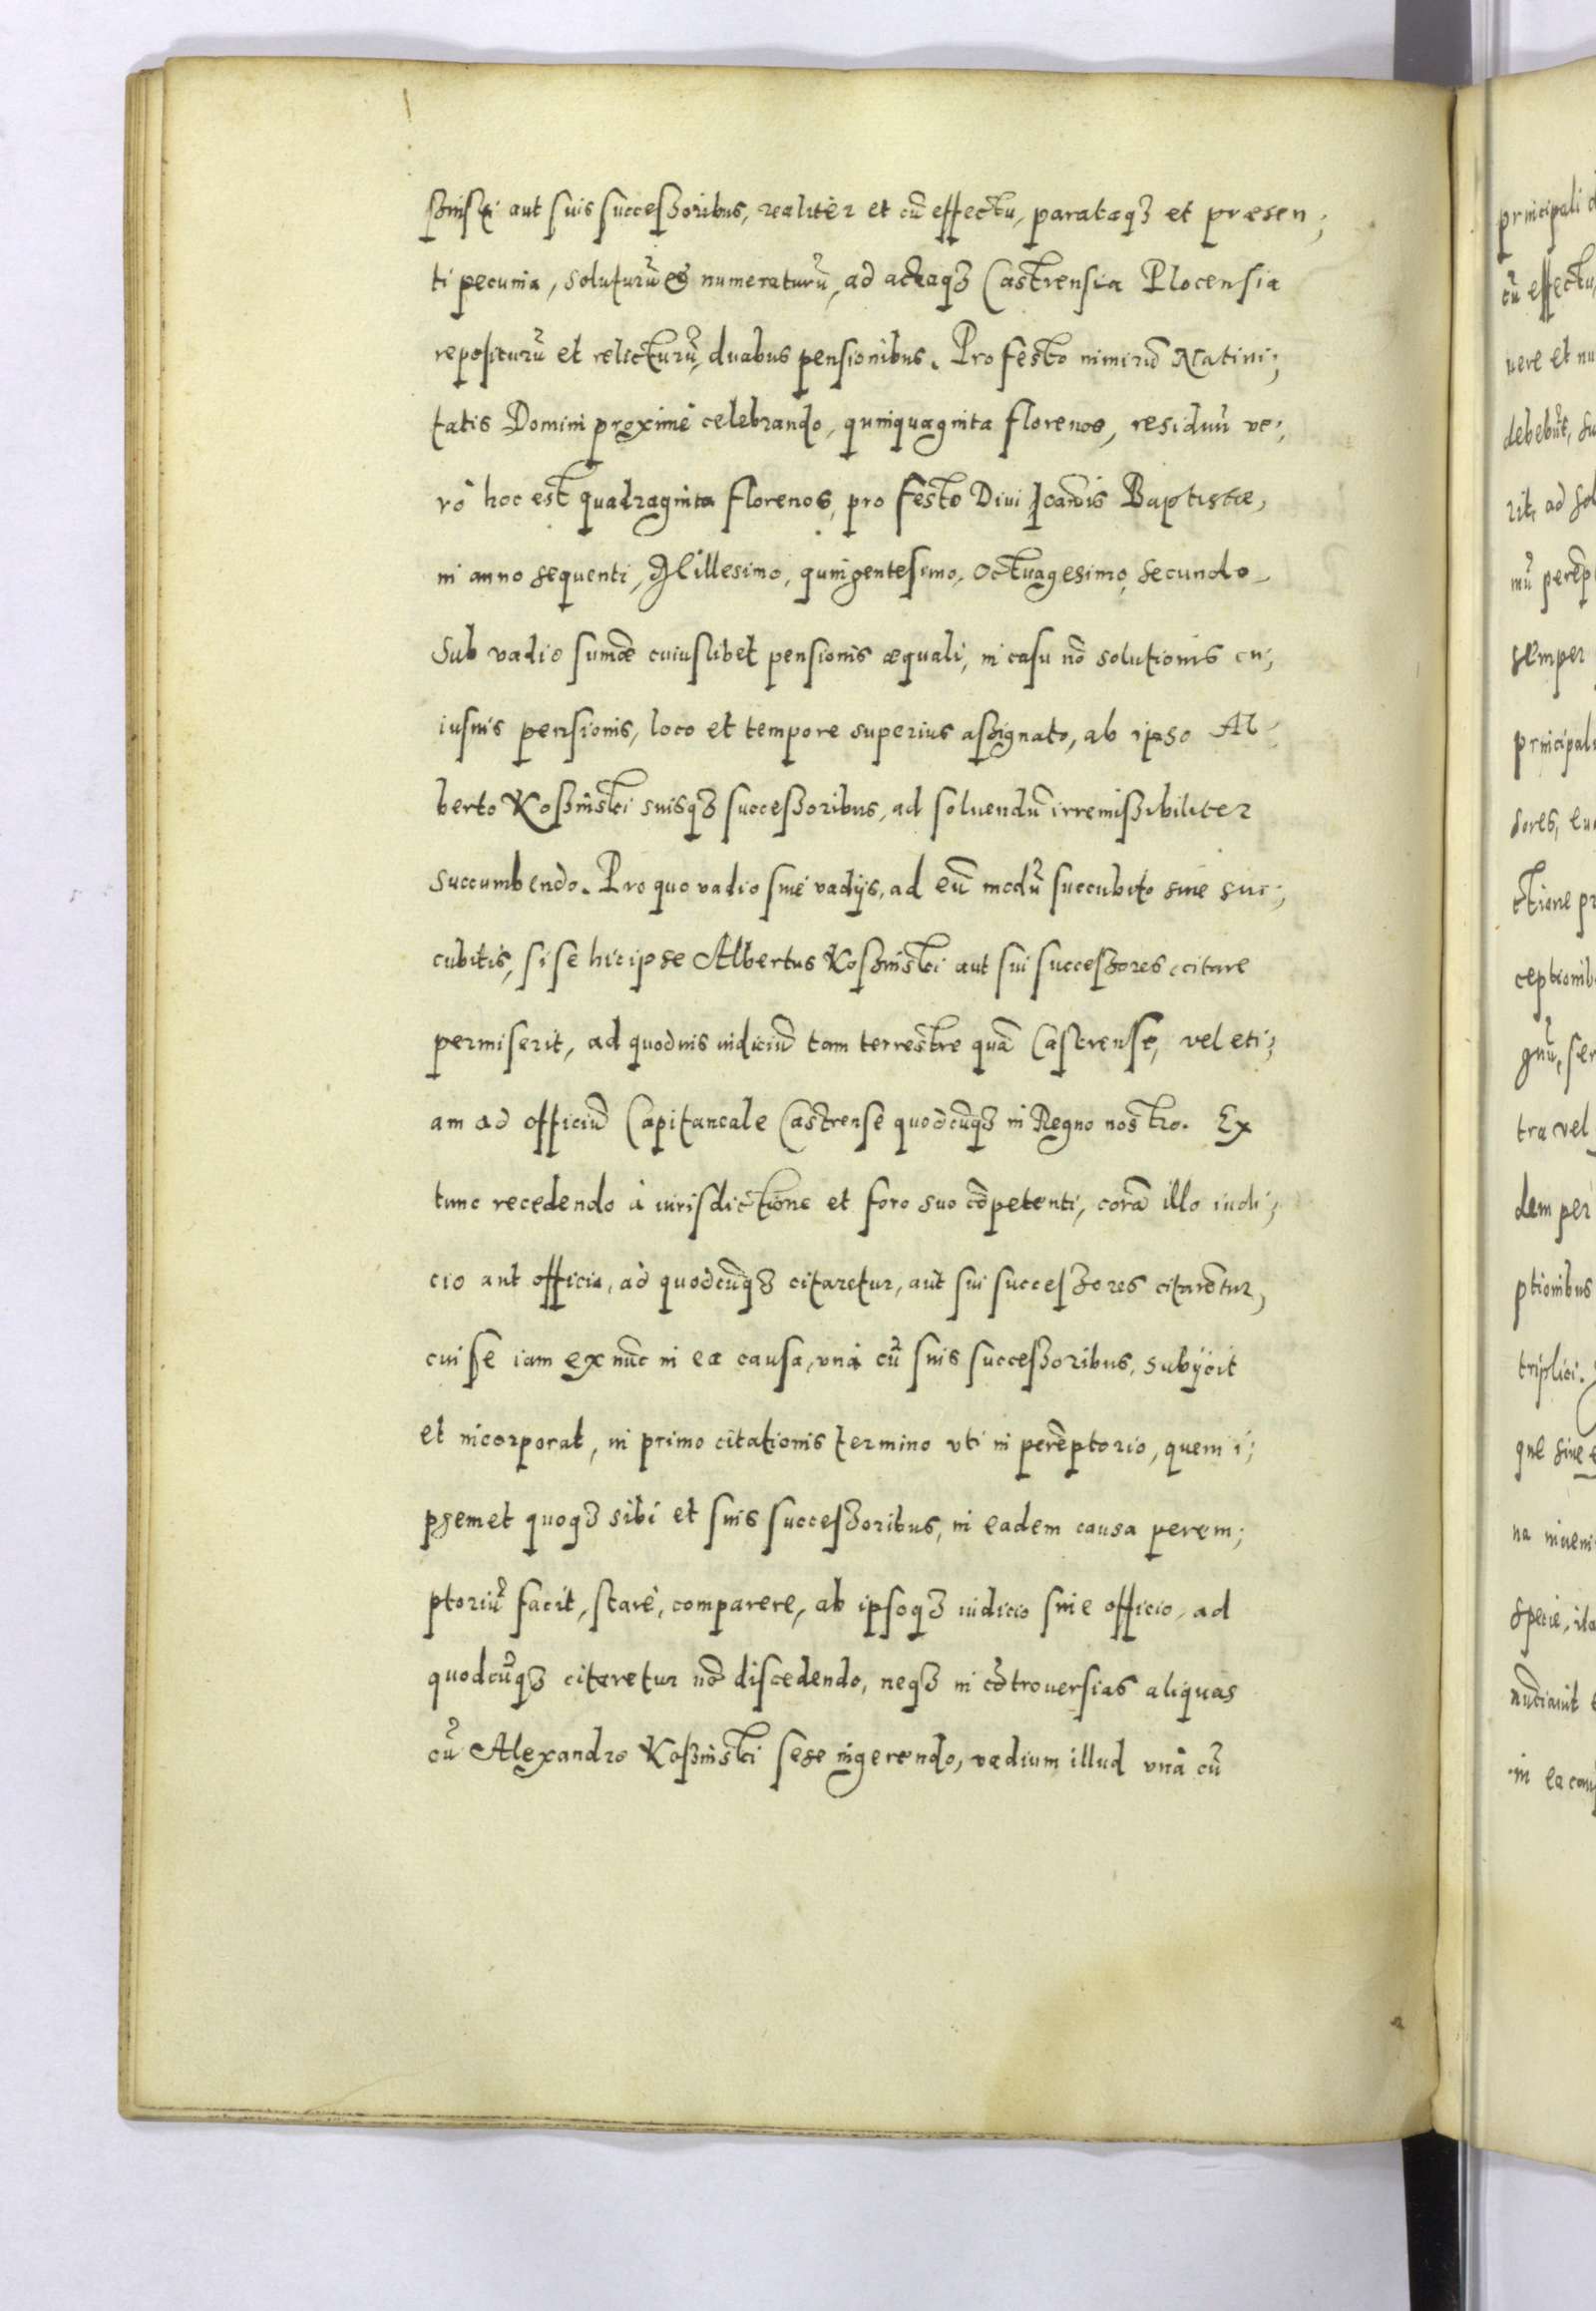 ßinski aut suis succeßoribus, realiter et cũ effectu, parataqȝ et præsen;
ti pecunia, soluturũ et numeraturũ, ad actaqȝ Castrensia Plocensia
repositurũ et relicturũ, duabus pensionibus. Pro festo nimirũ Natiui;
tatis Domini proximè celebrando, quinquaginta florenos, residuũ ve;
rò hoc est quadraginta florenos, pro festo Diui Joãnis Baptistæ,
in anno sequenti, Millesimo, quingentesimo, octuagesimo, secundo,
Sub vadio sum̃æ cuiuslibet pensionis æquali, in casu nõ solutionis cu;
iusuis pensionis, loco et tempore superius aßignato, ab ipso Al;
berto Koßinski suisqȝ succeßoribus, ad soluendũ irremißibiliter
succumbendo. Pro quo vadio siue vadijs, ad eũ modũ succubito siue suc;
cubitis, si se hic ipse Albertus Koßinski aut sui succeßores citare
permiserit, ad quoduis iudiciũ tam terrestre quã Castrense, vel eti;
am ad officiũ Capitaneale Castrense quodcũqȝ in Regno nostro. Ex
tunc recedendo à iurisdictione et foro suo cõpetenti, corã illo iudi;
cio aut officio, ad quodcũqȝ citaretur, aut sui succeßores citarẽtur,
cui se iam ex nũc in ea causa, vnà cũ suis succeßoribus, subijcit
et incorporat, in primo citationis termino vti in perẽptorio, quem i;
psemet quoqȝ sibi et suis succeßoribus, in eadem causa perem;
ptoriũ facit, stare, comparere, ab ipsoqȝ iudicio siue officio, ad
quodcũqȝ citaretur nõ discedendo, neqȝ in cõtrouersias aliquas
cũ Alexandro Koßinski sese ingerendo, vadium illud vnà cũ
principali
cũ effectu,
uere et nu
debebũt, su
rit, ad sol
mũ perẽp
semper
principali
sores, eu
ctione pr
ceptionib
gnũ, ser
tra vel
dem per
ptionibus
triplici.
que siue e
na inueni
specie, ita
nũciauit
in ea cau